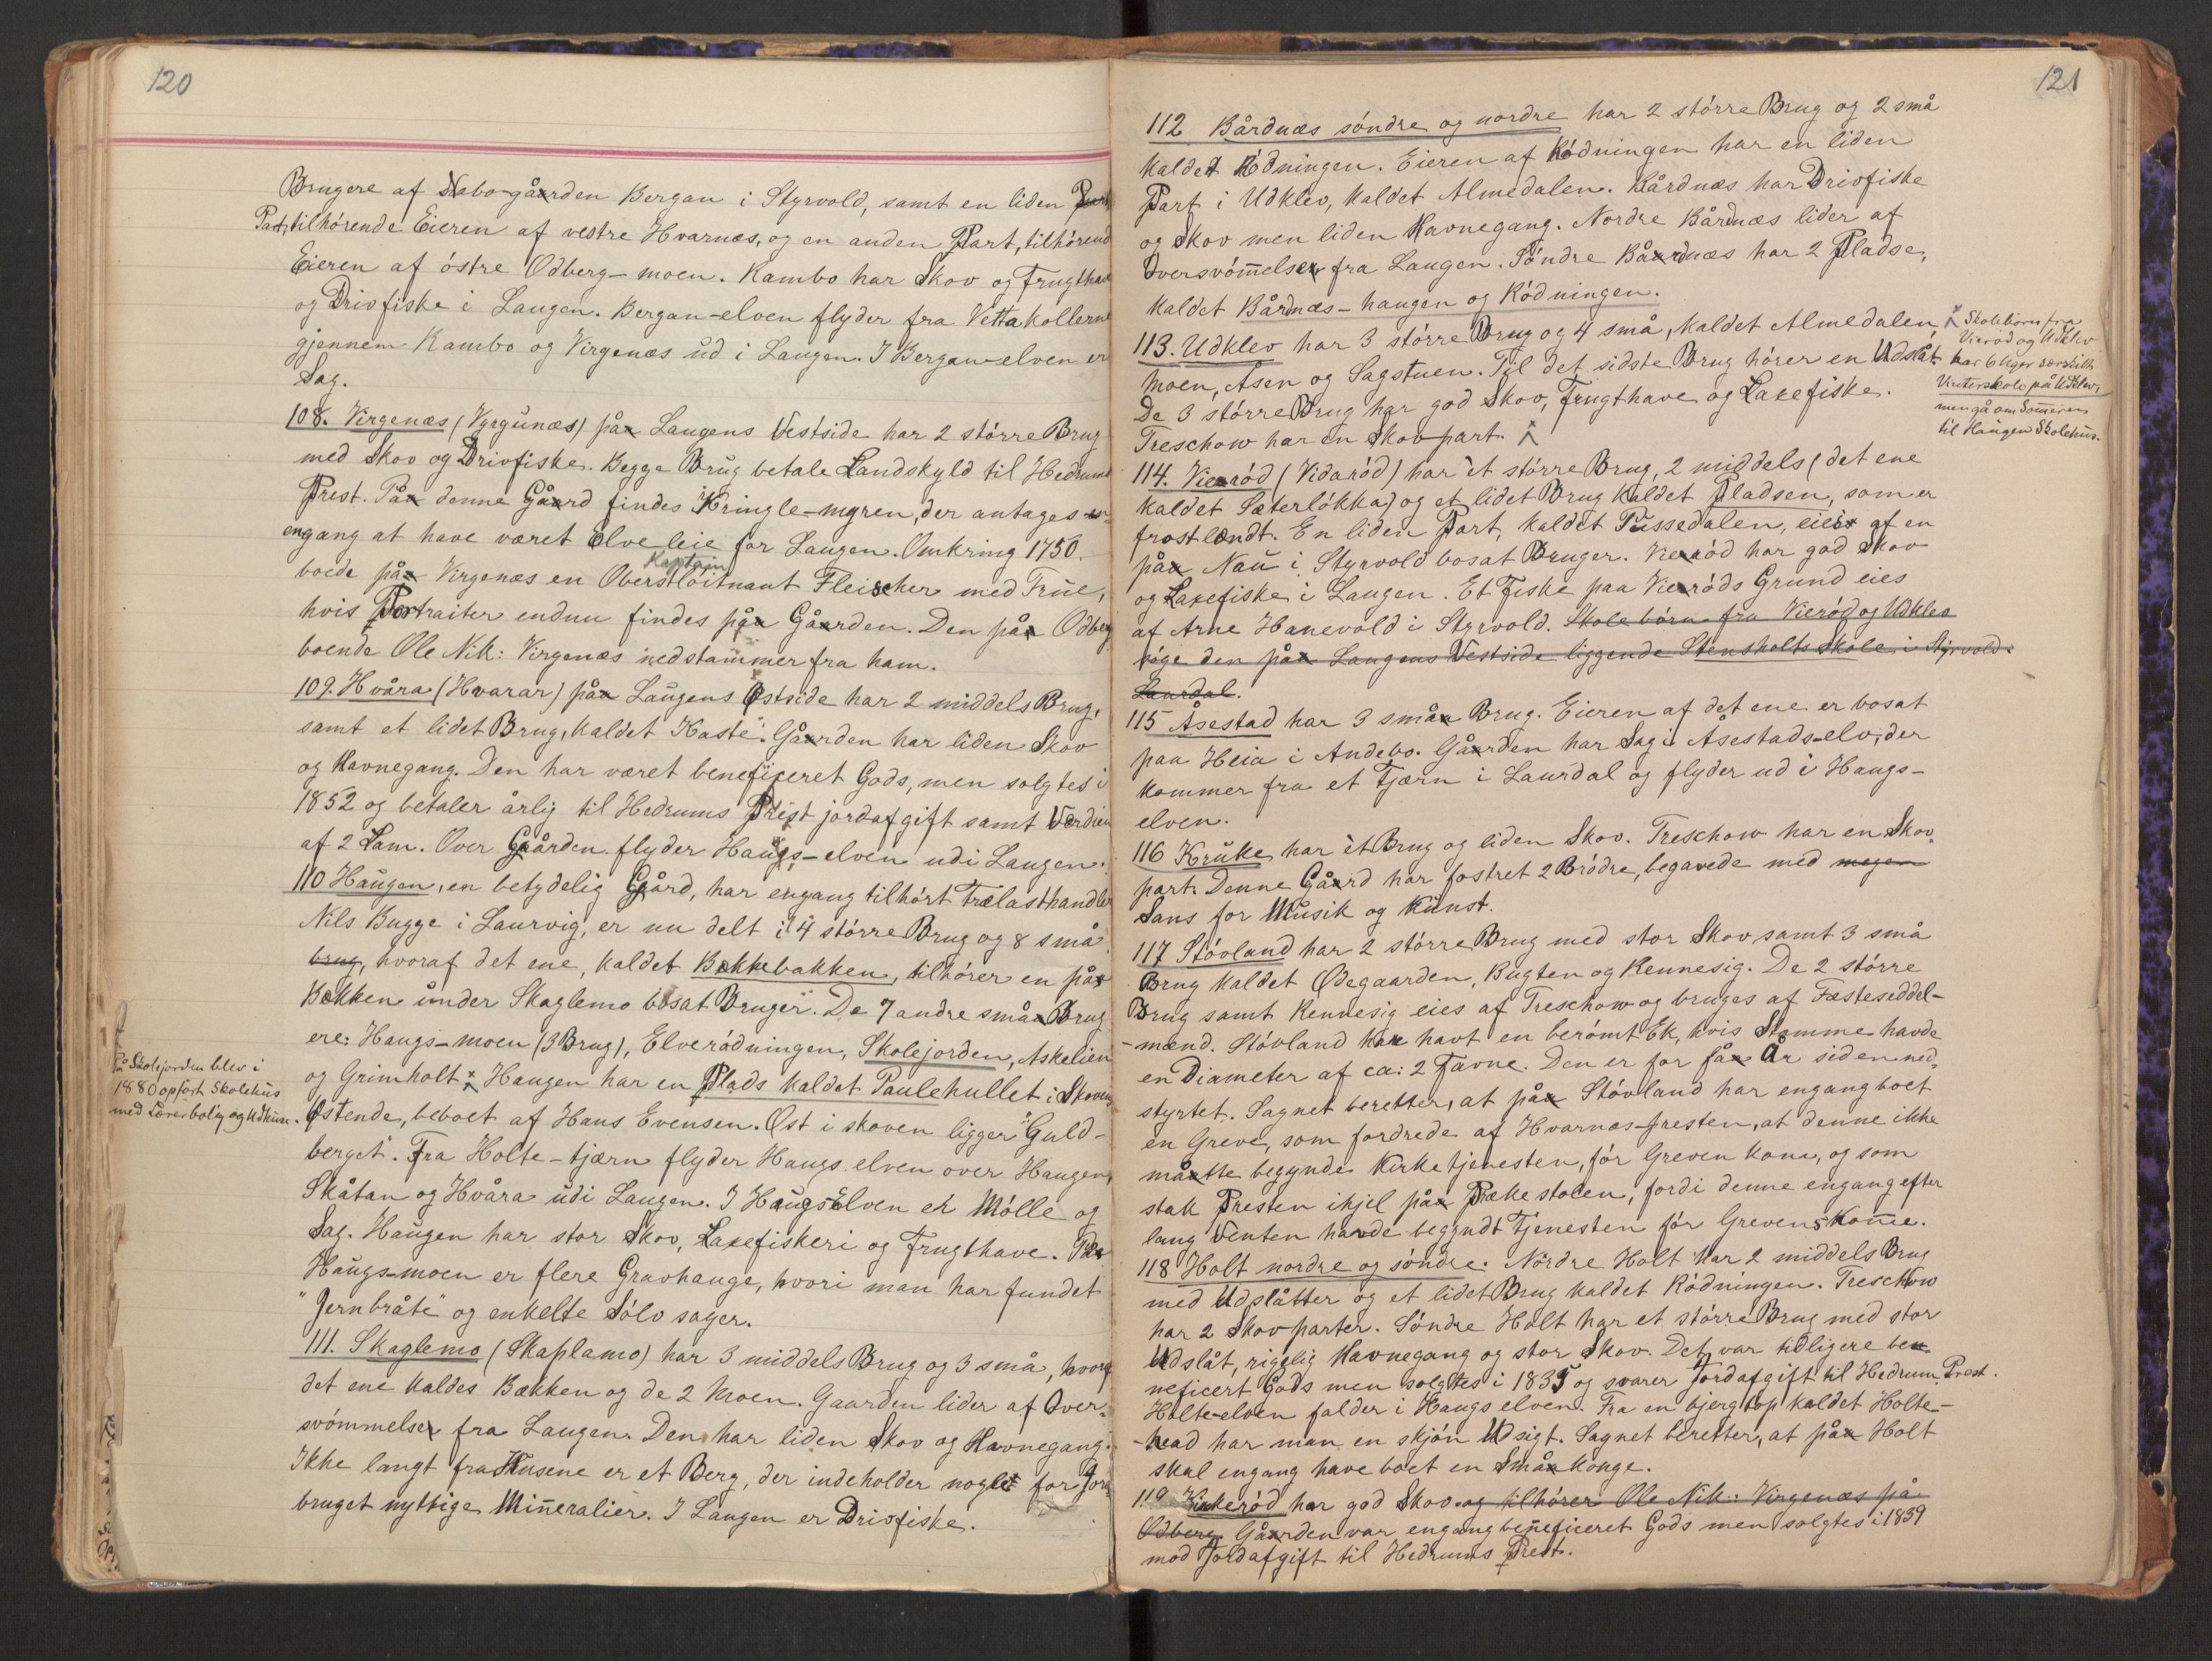 120
Brugere af Nabo-gården Bergan i Styrvold, samt en liden
Part, tilhörende Eieren af vestre Hvarnæs, og en anden Part, tilhörend
Eieren af östre Odberg-moen. Kambo har Skov og Frugthave
og Drivfiske i Laugen. Bergan-elven flyder fra Vettakollerne
gjennem Kambo og Virgenæs ud i Laugen. I Bergan-elven er
Sag.
108. Virgenæs (Vyrgunæs) på Laugens Vestside har 2 större Brug
med Skov og Drivfiske. Begge Brug betale Landskyld til Hedrums
Prest. På denne Gård findes Kringle-myren, der antages
engang at have været Elveleie for Laugen. Omkring 1750
Kaptain
boede på Virgenæs en Oberstlöitnant Fleischer med Frue,
hvis Portraiter endnu findes på Gården. Den på Odberg
boende Ole Nik: Virgenæs nedstammer fra ham.
109. Hvåra (Hvarar) på Laugens Østside har 2 middels Brug,
samt et lidet Brug, kaldet "Kaste". Gården har liden Skov
og Havnegang. Den har været beneficeret Gods, men solgtes i
1852 og betaler årlig til Hedrums Prest jordafgift samt Værdien
af 2 Lam. Over Gården flyder Haugs-elven udi Laugen.
110 Haugen, en betydelig Gård, har engang tilhört Trælasthandler
Nils Bugge i Laurvig, er nu delt i 4 större Brug og 8 små
brug, hvoraf det ene, kaldet Bækkebakken, tilhörer en på
Bækken under Skaglemo bosat Bruger. De 7 andre små Brug
ere: Haugs-moen (3 Brug), Elverödningen, Skolejorden, Askelien
og Grimholt × Haugen har en Plads kaldet Paulehullet i Skovens
På Skolejorden blev i
1880 opfört Skolehus
med Lærerbolig og Udhus.
Østende, beboet af Hans Evensen. Øst i skoven ligger "Guld-
berget". Fra Holte-tjærn flyder Haugs elven over Haugen,
Skåtan og Hvåra udi Laugen. I Haugs Elven er Mölle og
Sag. Haugen har stor Skov, Laxefiskeri og Frugthave. På
Haugs-moen er flere Gravhauge, hvori man har fundet
"Jernbråte" og enkelte Sölv sager.
111. Skaglemo (Skaplamo) har 3 middels Brug og 3 små, hvoraf
det ene kaldes Bækken og de 2 Moen. Gaarden lider af Over-
svömmelser fra Laugen. Den har liden Skov og Havnegang.
Ikke langt fra Husene er et Berg, der indeholder noglet for Jord
bruget nyttige Mineralier. I Laugen er Drivfiske.
121
112 Bårdnæs söndre og nordre har 2 större Brug og 2 små
kaldet Rödningen. Eieren af Rödningen har en liden
Part i Udklev, kaldet Almedalen. Bårdnæs har Drivfiske
og Skov men liden Havnegang. Nordre Bårdnæs lider af
Oversvömmelser fra Laugen. Söndre Bårdnæs har 2 Pladse,
kaldet Bårdnæs-haugen og Rödningen.
113. Udklev har 3 större Brug og 4 små, kaldet Almedalen,
Moen, Åsen og Sagstuen. Til det sidste Brug hörer en Udslåt.
De 3 större Brug har god Skov, Frugthave og Laxefiske.
Treschow har en Skovpart. ×
× Skolebörn fra
Vieröd og Udklev
har 6 Uger særskilt
Vinterskole på Udklev,
men gå om Sommeren
til Haugen Skolehus.
114. Vieröd (Vidaröd) har et större Brug, 2 middels (det ene
kaldet Sæterlökka) og et lidet Brug kaldet Pladsen, som er
frostlændt. En liden Part, kaldet Tussedalen, eies af en
på Nau i Styrvold bosat Bruger. Vieröd har god Skov
og Laxefiske i Laugen. Et Fiske paa Vieröds Grund eies
af Arne Hanevold i Styrvold. Skolebörn fra Vieröd og Udklev
söge den på Laugens Vestside liggende Stensholts Skole i Styrvold.
Laurdal.
115 Åsestad har 3 små Brug. Eieren af det ene er bosat
paa Heia i Andebo. Gården har Sag i Åsestads-elv, der
kommer fra et Tjærn i Laurdal og flyder ud i Haugs-
elven.
116 Kruke har èt Brug og liden Skov. Treschow har en Skov-
part. Denne Gård har fostret 2 Brödre, begavede med megen
Sans for Musik og Kunst.
117 Stövland har 2 större Brug med stor Skov samt 3 små
Brug kaldet Ødegaarden, Bugten og Rennesig. De 2 större
Brug samt Rennesig eies af Treschow og bruges af Fæsteseddel-
-mænd. Stövland har havt en berömt Ek, hvis Stamme havde
en Diameter af ca: 2 Favne. Den er for få År siden ned-
styrtet. Sagnet beretter, at på Stövland har engang boet
en Greve, som fordrede af Hvarnæs-presten, at denne ikke
måtte begynde Kirketjenesten, för Greven kom, og som
stak Presten ihjel på Prækestolen, fordi denne engang efter
lang Venten havde begyndt Tjenesten för Grevens Komme.
118 Holt nordre og söndre. Nordre Holt har 2 middels Brug
med Udslåtter og et lidet Brug kaldet Rödningen. Treschow
har 2 Skovparter. Söndre Holt har et större Brug med stor
Udslåt, rigelig Havnegang og stor Skov. Det var tidligere be-
neficert Gods men solgtes i 1835 og svarer Jordafgift til Hedrum Prest.
Holte-elven falder i Haugs elven. Fra en bjergtop kaldet Holte-
-head har man en skjön Udsigt. Sagnet beretter, at på Holt
skal engang have boet en Småkonge.
119 Kinkeröd har god Skov og tilhörer Ole Nik: Virgenæs på
Odberg. Gården var engang beneficeret Gods men solgtes i 1839
mod Jordafgift til Hedrums Prest.